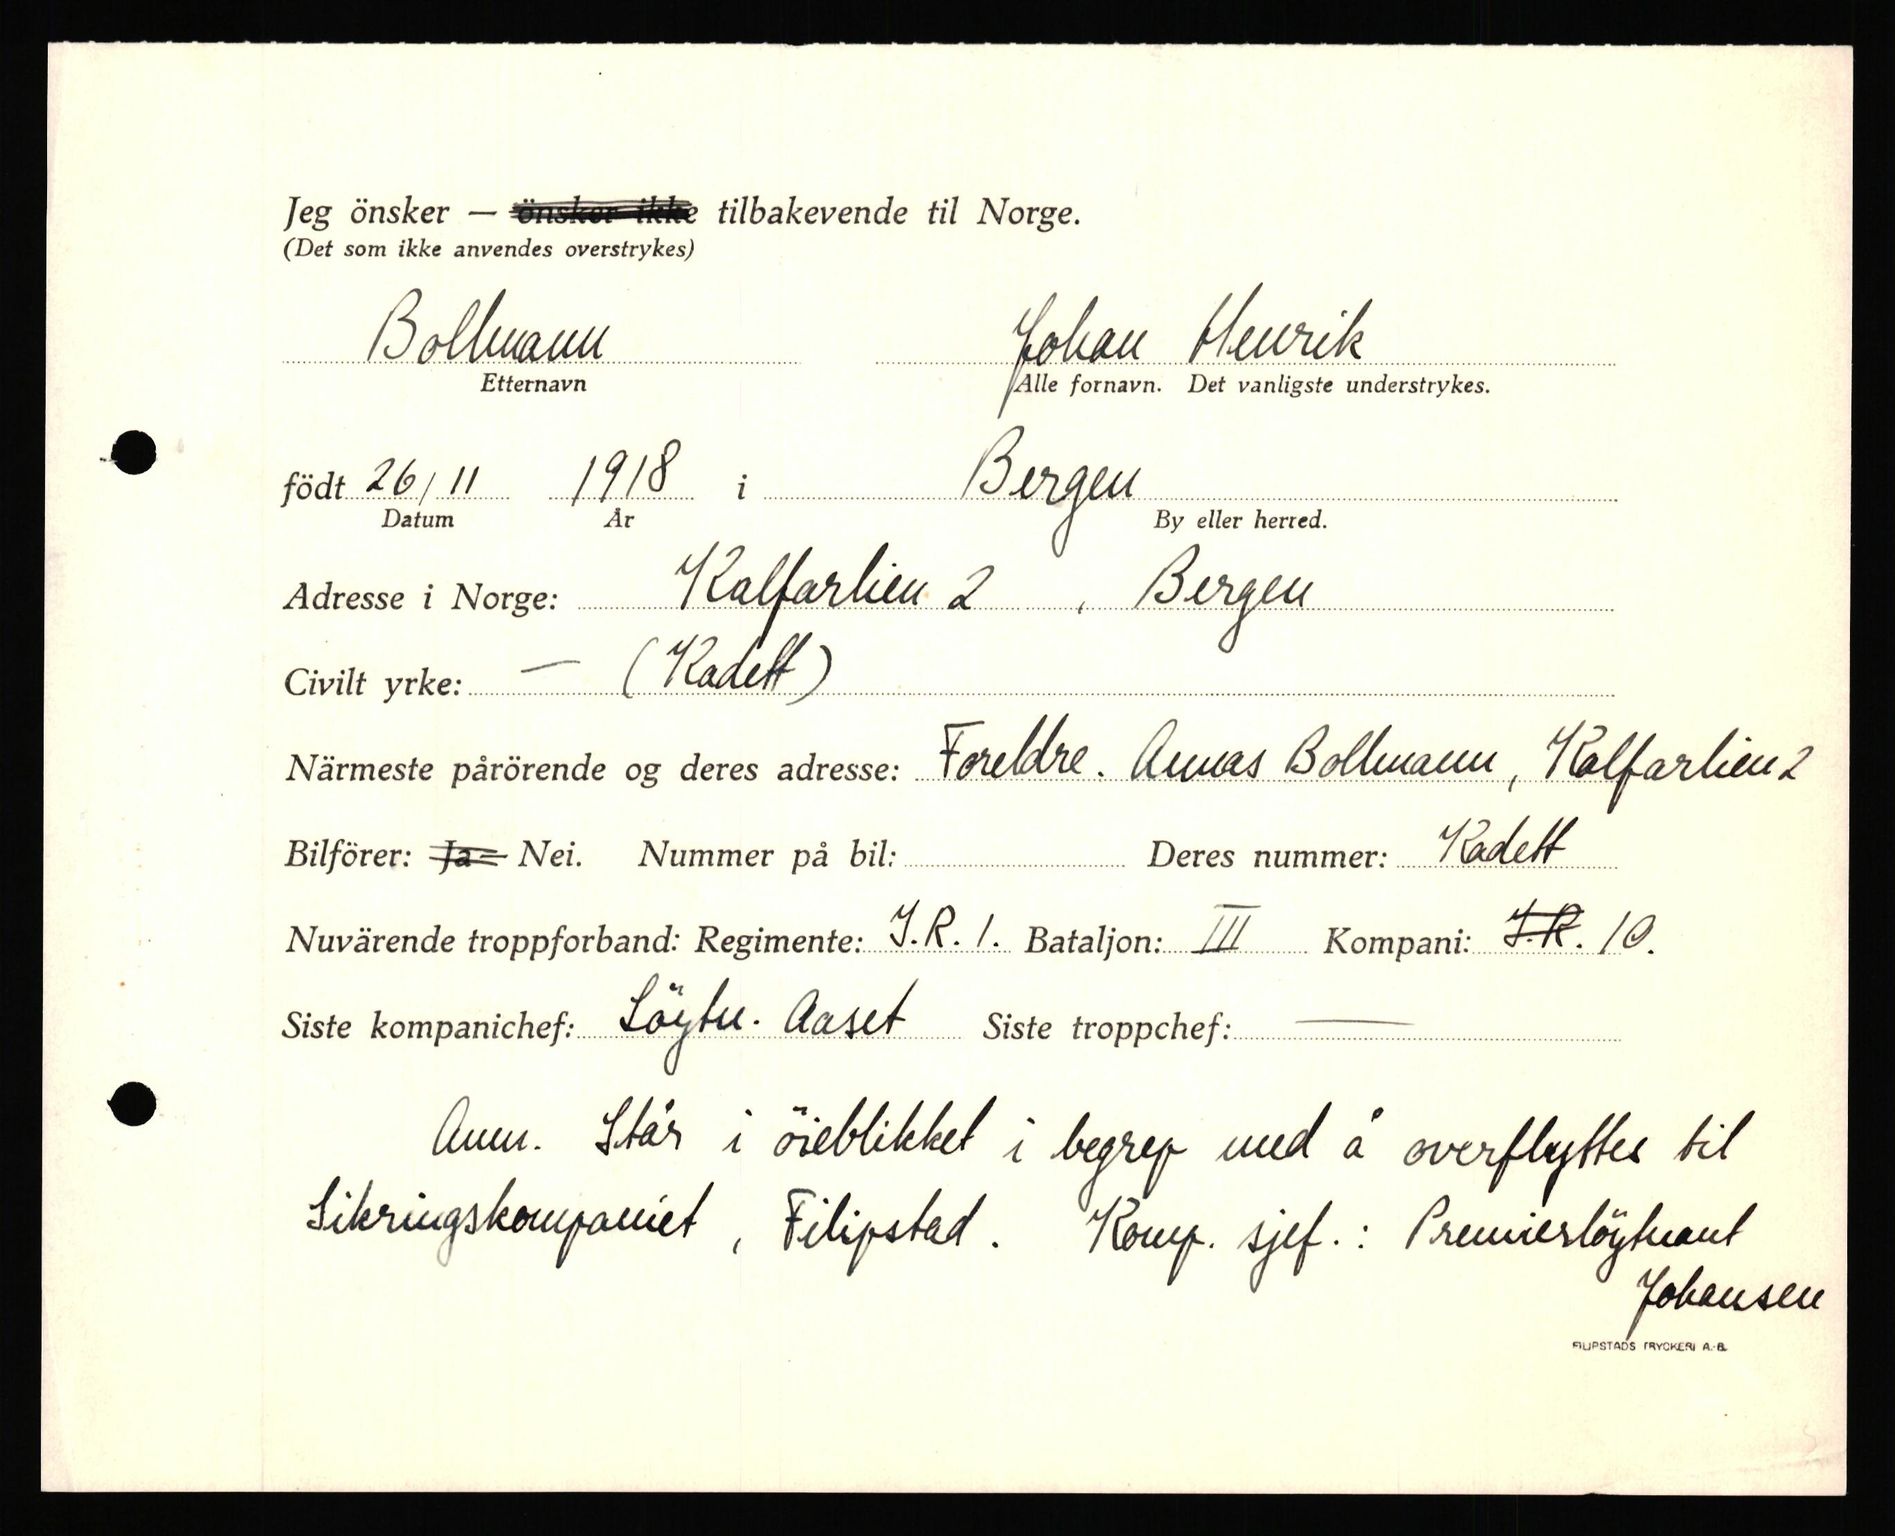 Jeg önsker — önsker ikke tilbakevende til Norge.
(Det som ikke anvendes overstrykes)
Bollmann Johan Henrik
Etternavn Alle fornavn. Det vanligste understrykes.
födt 26/11 1918 i Bergen
Datum År By eller herred.
Adresse i Norge: Kalfarlien 2, Bergen
Civilt yrke: — (Kadett)
Närmeste pårörende og deres adresse: Foreldre. Annas Bollmann, Kalfarlien 2
Bilförer: Ja – Nei. Nummer på bil: Deres nummer: Kadett
Nuvärende troppforband: Regimente: I.R. 1. Bataljon: III Kompani: I.R. 10.
Siste kompanichef: Löytn. Aaset Siste troppchef: —
Anm. Står i öieblikket i begrep med å overflyttes til
Sikringskompaniet, Filipstad. Komp. sjef.: Premierlöytnant
Johansen
FILIPSTADS TRYCKERI A.-B.